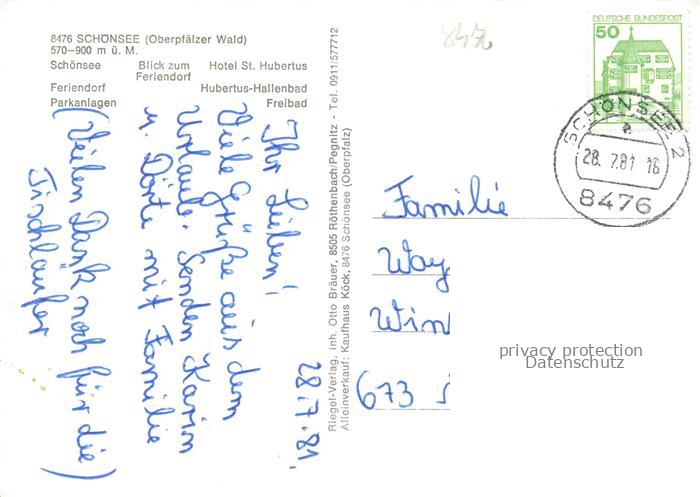 8476 SCHÖNSEE (Oberpfälzer Wald)
570–900 m ü. M.
Schönsee Blick zum Feriendorf Hotel St. Hubertus
Feriendorf Hubertus-Hallenbad
Parkanlagen Freibad
28.7.81.
Ihr Lieben!
Viele Grüße aus dem
Urlaub. Senden Karin
u. Dörte mit Familie
(Vielen Dank noch für die)
Tischläufer
Riegel-Verlag, Inh. Otto Bräuer, 8505 Röthenbach/Pegnitz - Tel. 0911/577712
Alleinverkauf: Kaufhaus Köck, 8476 Schönsee (Oberpfalz)
847
DEUTSCHE BUNDESPOST
50
SCHÖNSEE 2
a
28.7.81 16
8476
Familie
Way
Win
673
privacy protection
Datenschutz